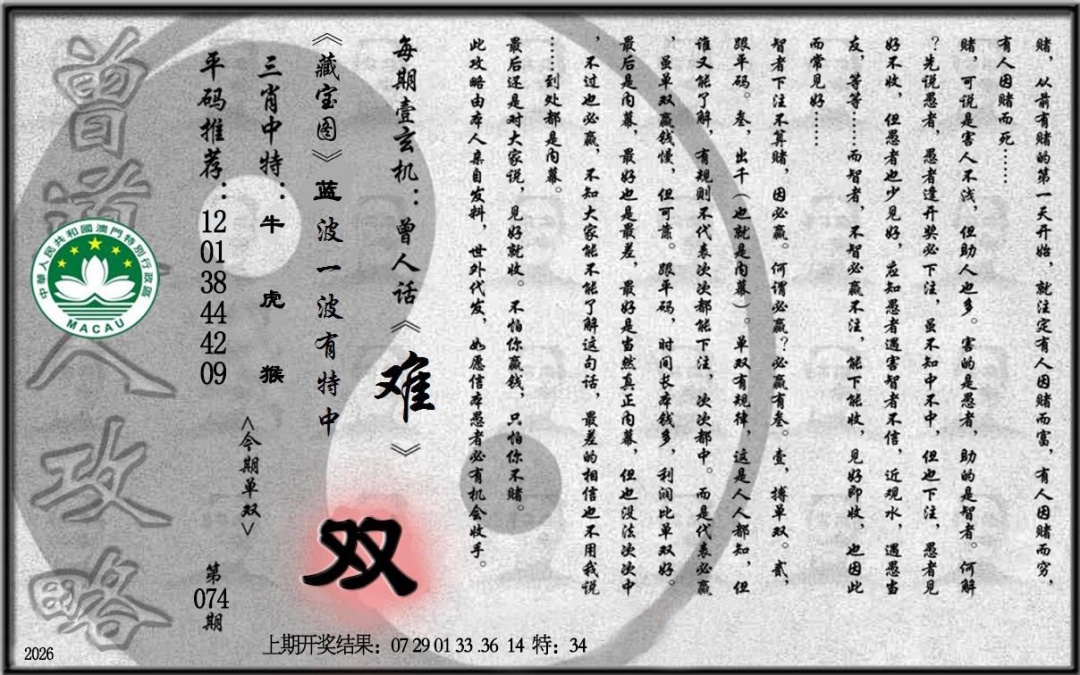 赌，从前有赌的第一天开始，就注定有人因赌而富，有人因赌而穷，
有人因赌而死……
赌，可说是害人不浅，但助人也多。害的是愚者，助的是智者。何解
？先说愚者，愚者逢开奖必下注，虽不知中不中，但也下注，愚者见
好不收，但愚者也少见好，应知愚者遇害智者不信，近观水，遇愚当
友，等等……而智者，不智必赢不注，能下能收，见好即收，也因此
而常见好……
智者下注不算赌，因必赢。何谓必赢？必赢有叁。壹，搏单双。贰，
跟平码。叁，出千（也就是内幕）。单双有规律，这是人人都知，但
谁又能了解，有规则不代表次次都能下注，次次都中。而是代表必赢
，虽单双赢钱慢，但可靠。跟平码，时间长本钱多，利润比单双好。
最后是内幕，最好也是最差，最好是当然真正内幕，但也没法次次中
，不过也必赢，不知大家能不能了解这句话，最差的相信也不用我说
……到处都是内幕。
最后还是对大家说，见好就收。不怕你赢钱，只怕你不赌。
此攻略由本人亲自发料，世外代发，如愿信本愚者必有机会收手。
每期壹玄机：曾人话《难》
《藏宝图》蓝波一波有特中
双
三肖中特：牛 虎 猴
<今期单双>
平码推荐：12 01 38 44 42 09
第074期
曾道人攻略
中華人民共和國澳門特別行政區
MACAU
上期开奖结果：07 29 01 33 .36 14 特：34
2026